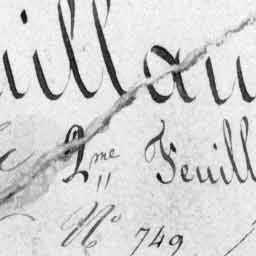 aillau
2me Feuill
No 749